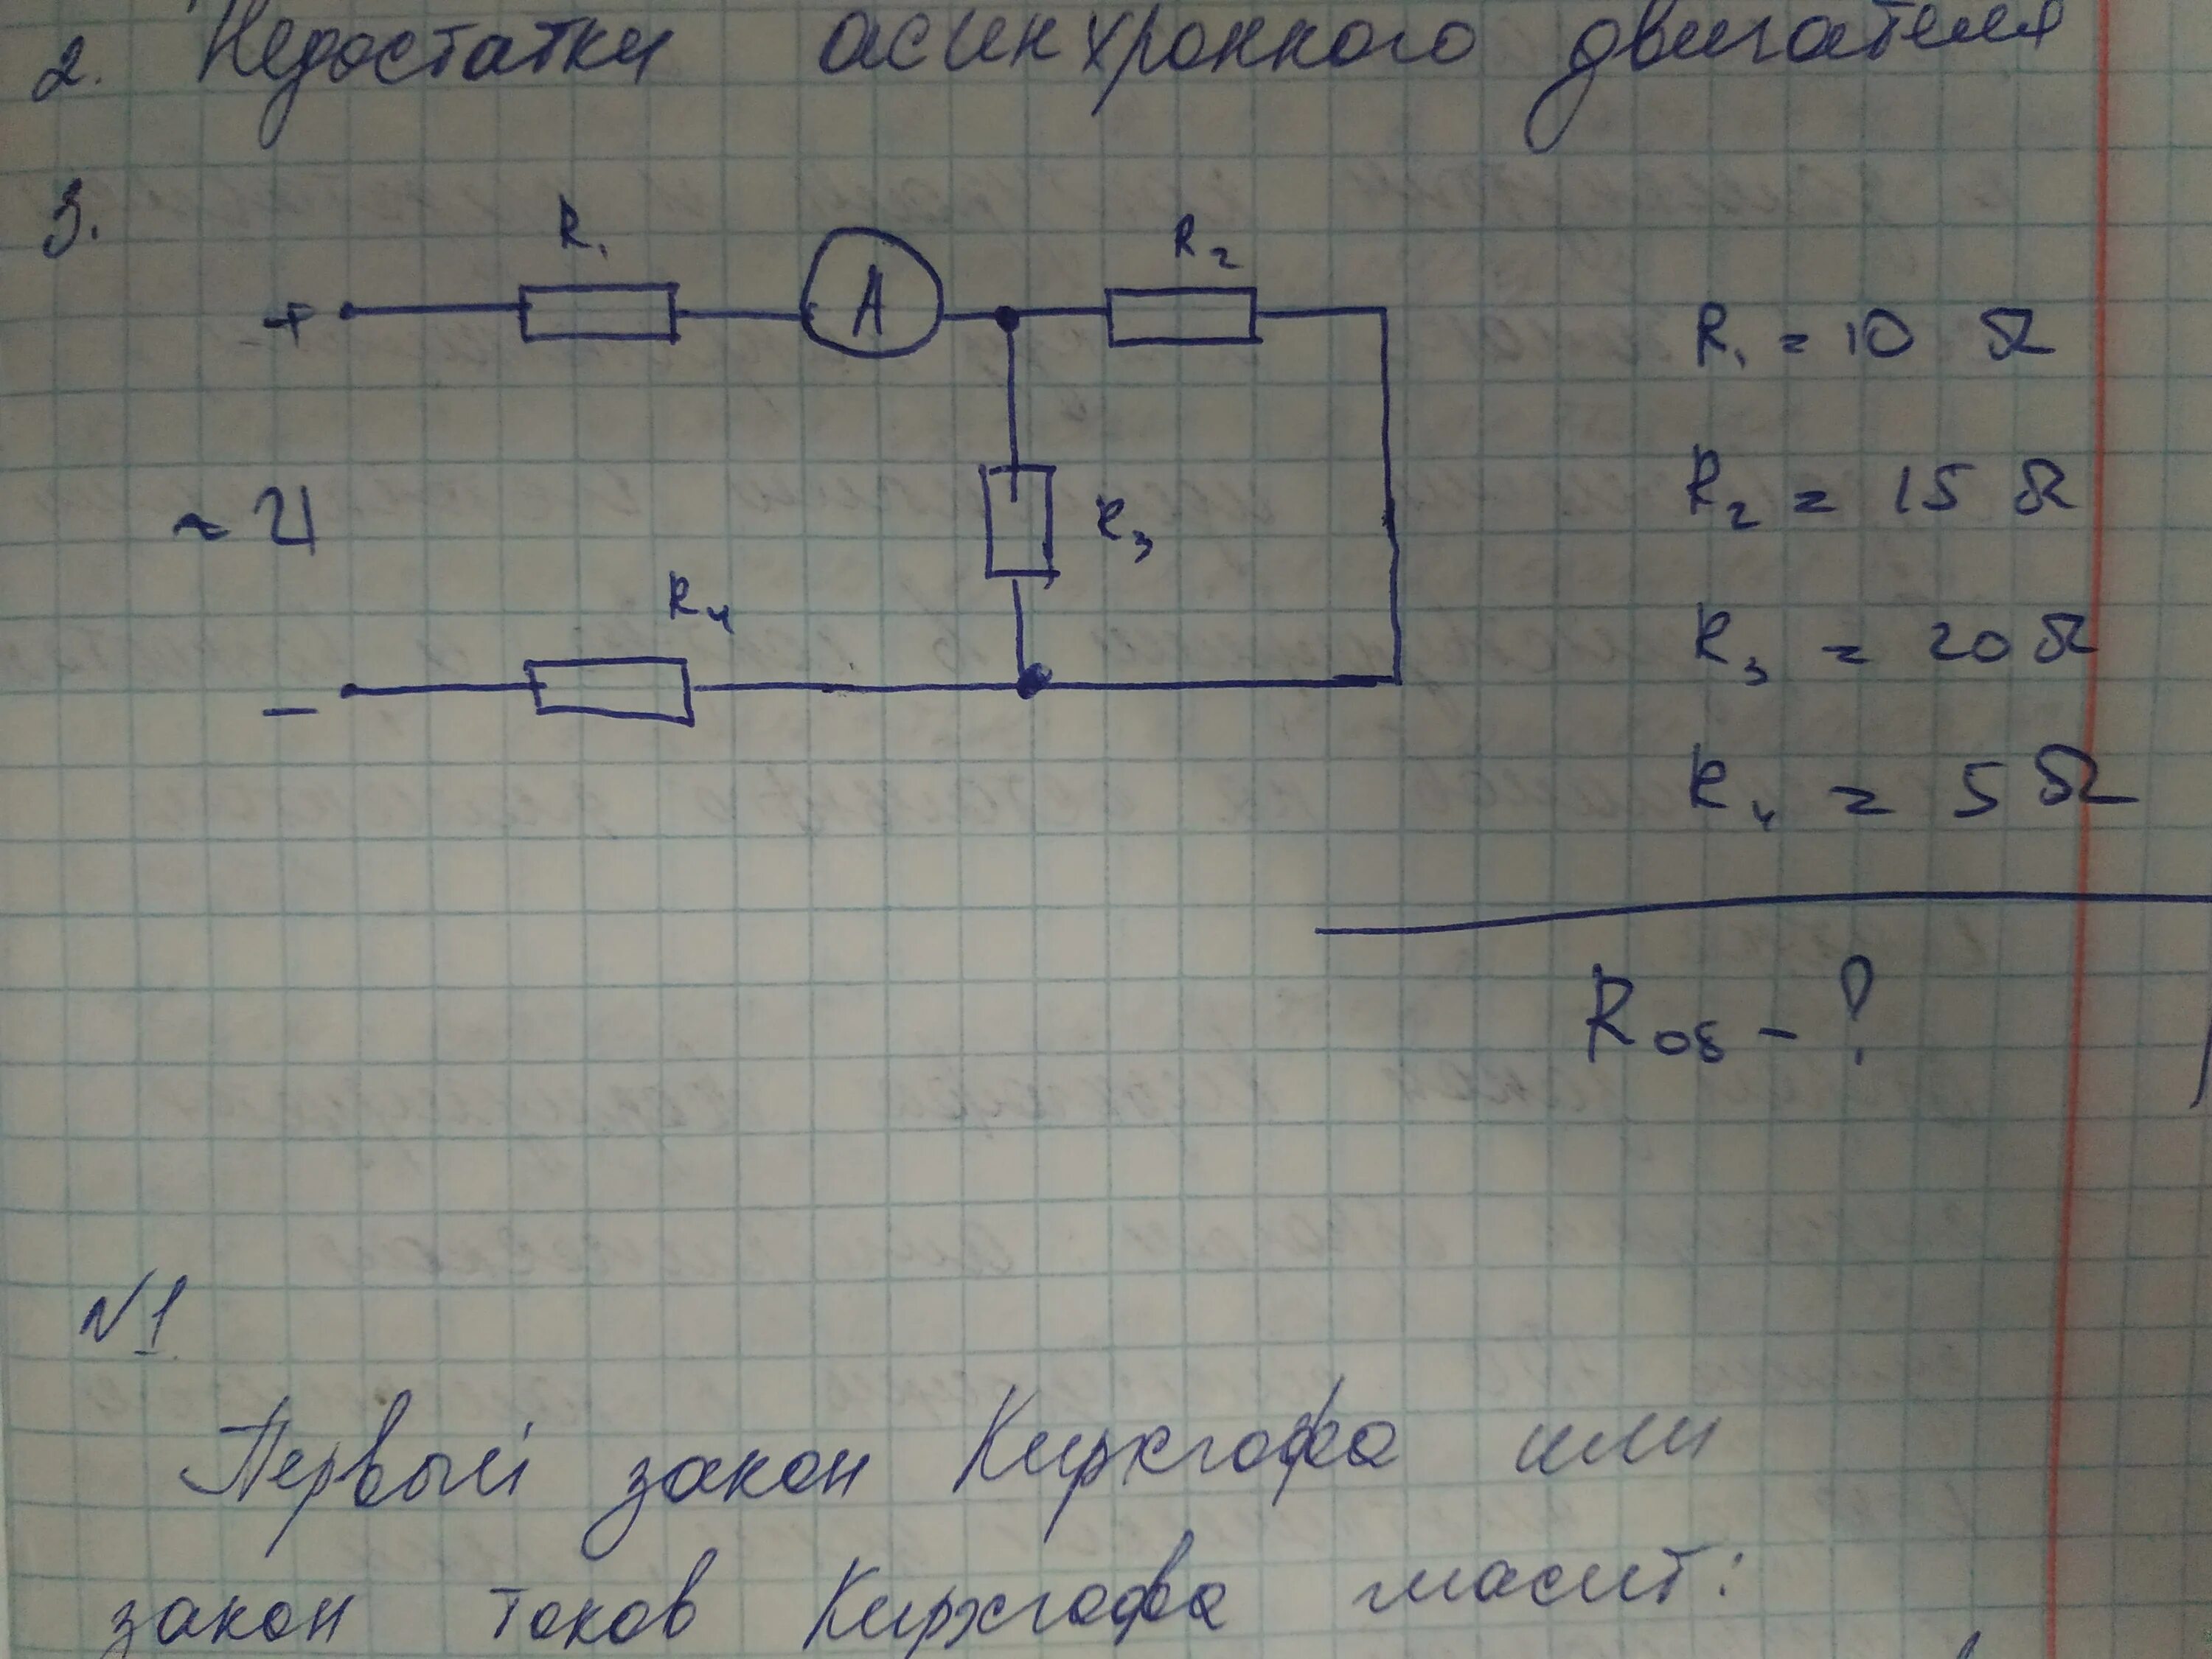 2. Недостатки асинхронного двигателя
3.
R₁
A
R₂
+
R₁ = 10 Ω
~ U
R₃
R₂ = 15 Ω
R₄
R₃ = 20 Ω
−
R₄ = 5 Ω
Rоб - ?
N1
Первый закон Кирхгофа или
закон токов Кирхгофа гласит: